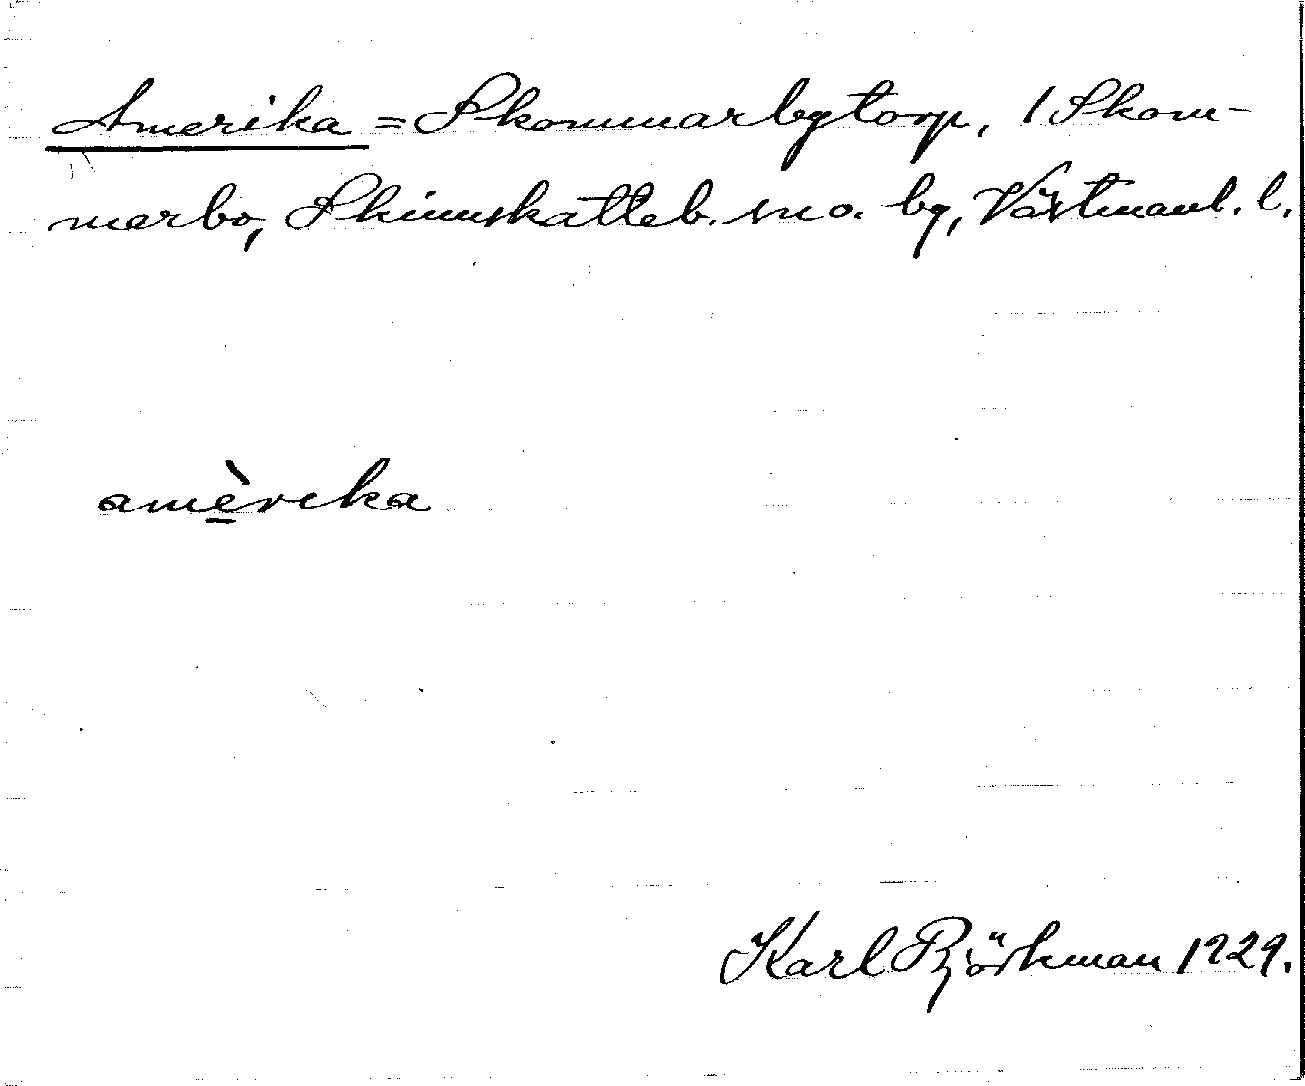 Amerika = Skommarbytorp, 1 Skom-
marbo, Skinnskatteb. sn o. by, Västmanl. l.
amèrika
Karl Björkman 1929.